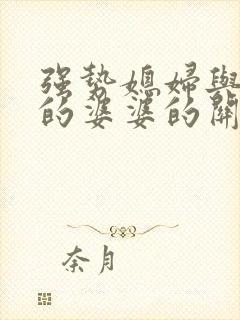 强勢媳婦與
的婆婆的開
奈月